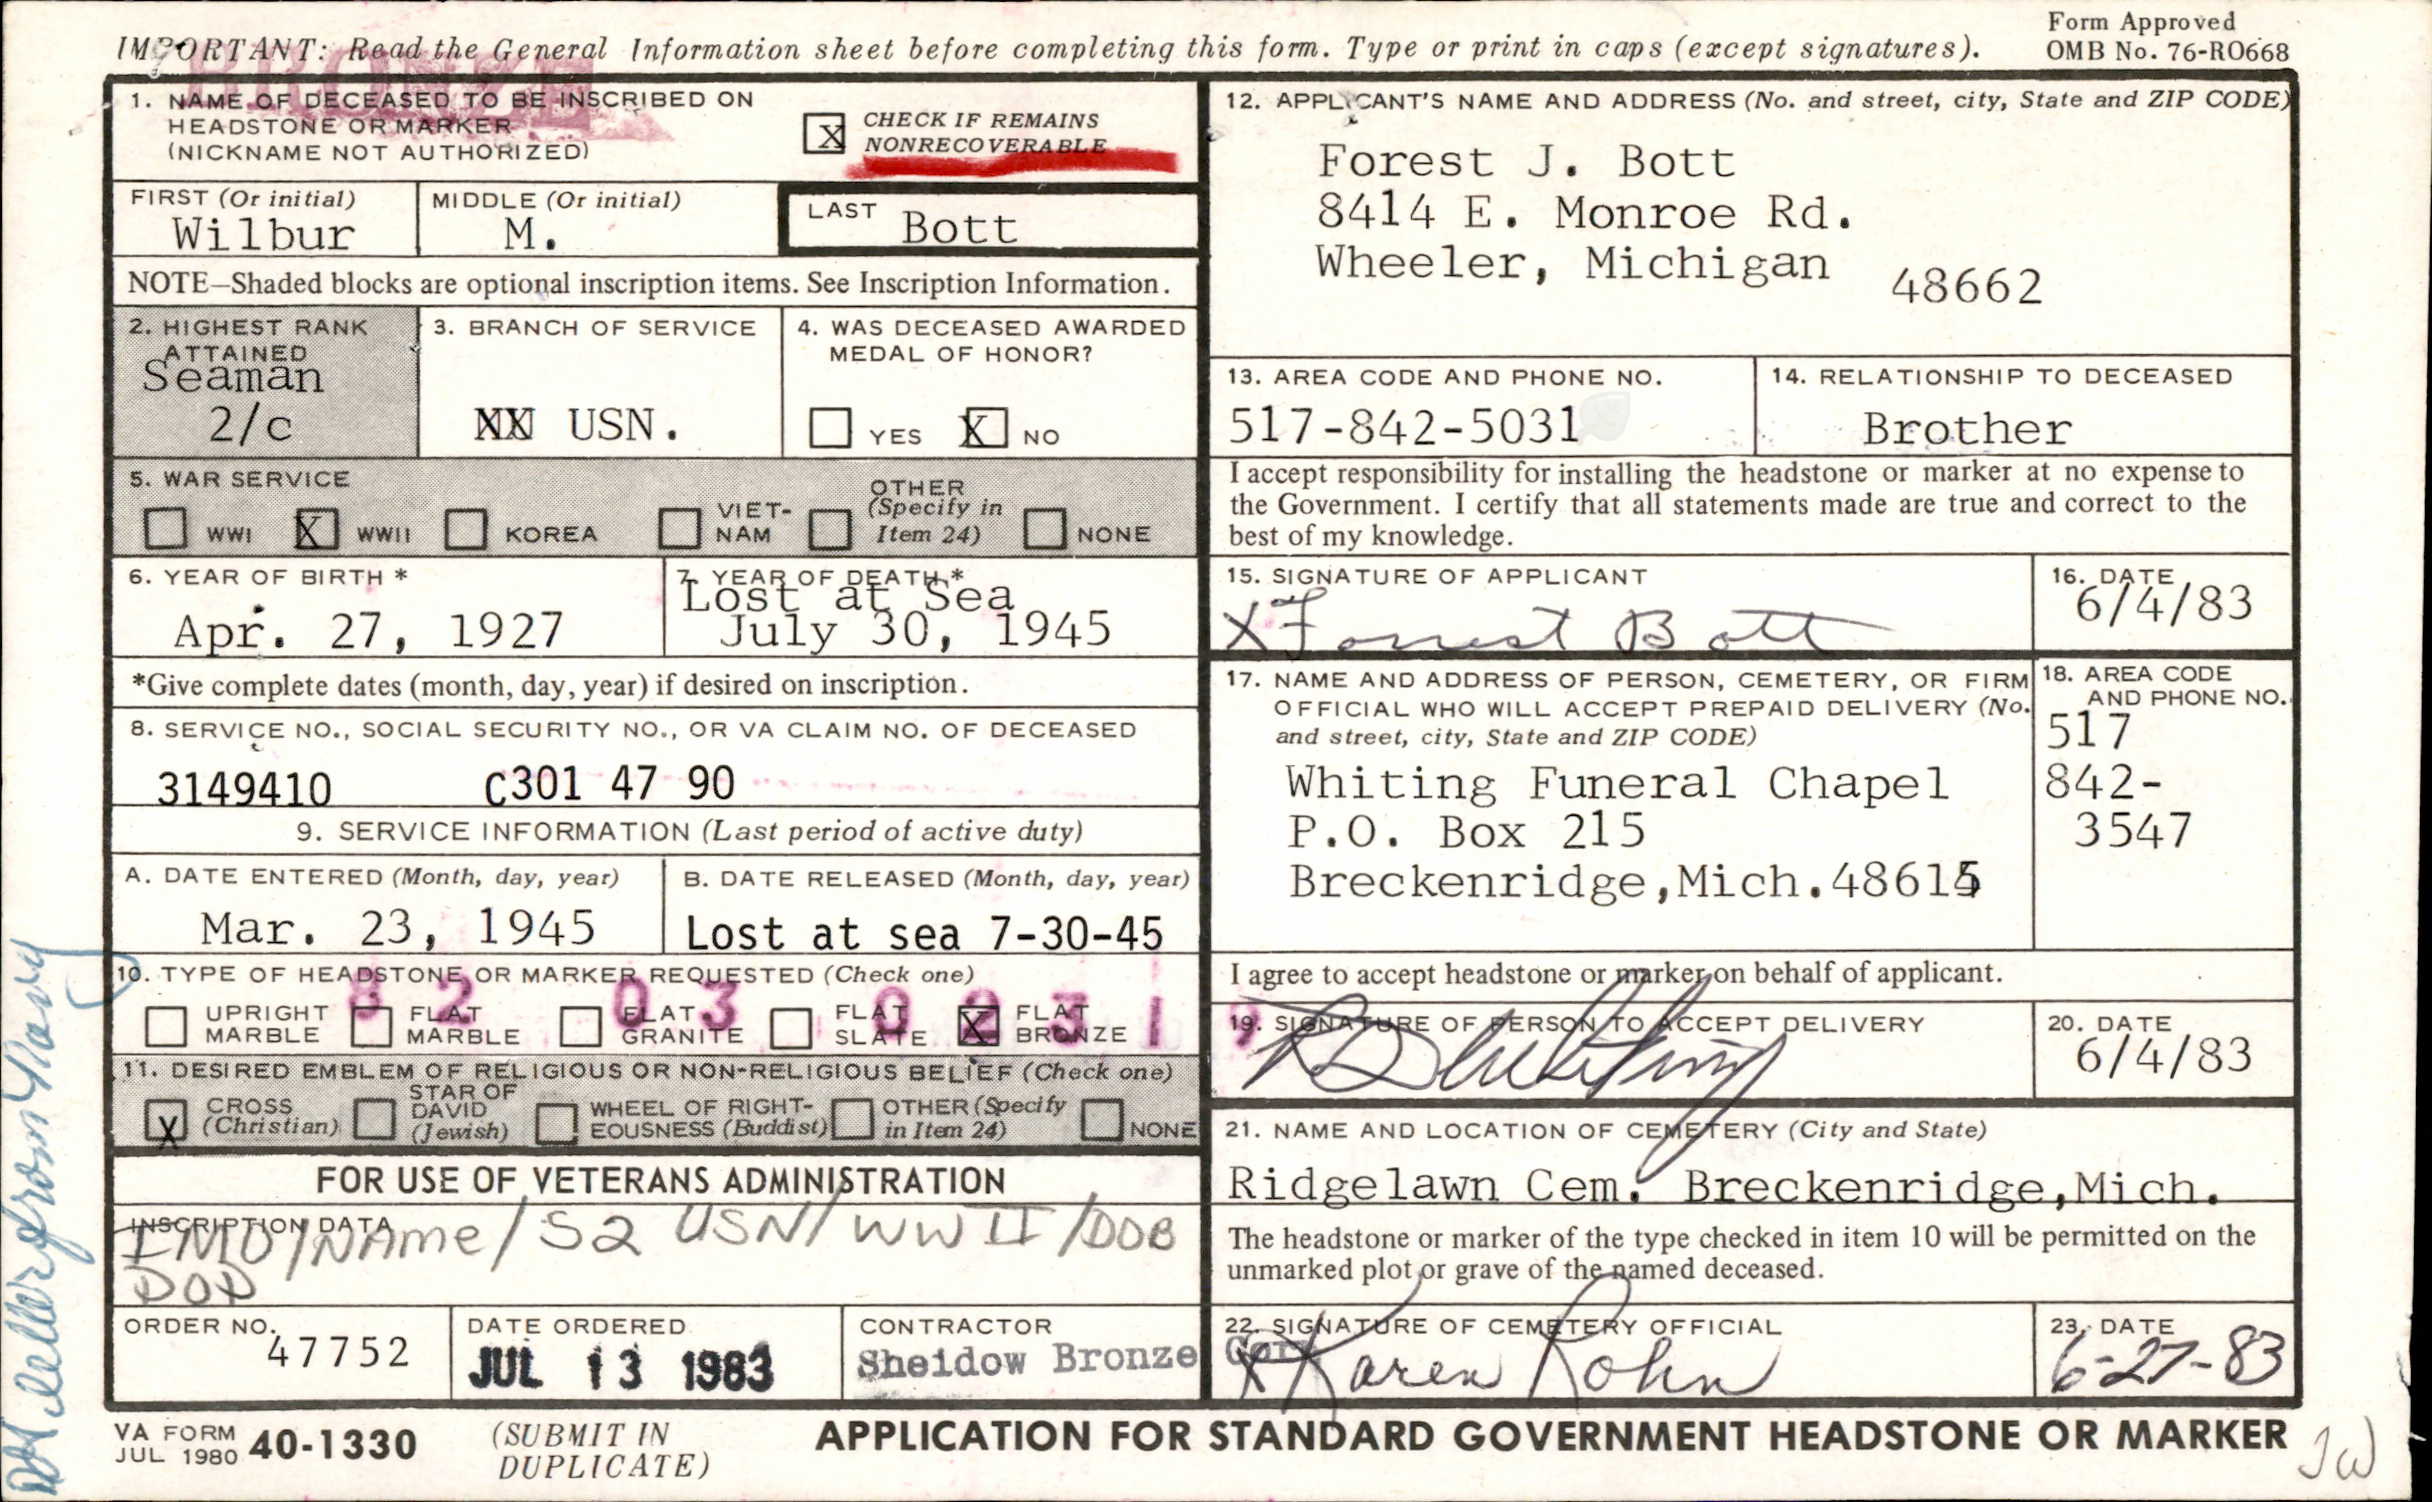 IMPORTANT: Read the General Information sheet before completing this form. Type or print in caps (except signatures).
Form Approved
OMB No. 76-RO668
BRONZE
1. NAME OF DECEASED TO BE INSCRIBED ON
HEADSTONE OR MARKER
(NICKNAME NOT AUTHORIZED)
X CHECK IF REMAINS
NONRECOVERABLE
FIRST (Or initial)
Wilbur
MIDDLE (Or initial)
M.
LAST
Bott
NOTE—Shaded blocks are optional inscription items. See Inscription Information.
2. HIGHEST RANK
ATTAINED
Seaman
2/c
3. BRANCH OF SERVICE
XX USN.
4. WAS DECEASED AWARDED
MEDAL OF HONOR?
YES X NO
5. WAR SERVICE
WWI X WWII KOREA VIET-
NAM OTHER
(Specify in
Item 24) NONE
6. YEAR OF BIRTH *
Apr. 27, 1927
7. YEAR OF DEATH *
Lost at Sea
July 30, 1945
*Give complete dates (month, day, year) if desired on inscription.
8. SERVICE NO., SOCIAL SECURITY NO., OR VA CLAIM NO. OF DECEASED
3149410 C301 47 90
9. SERVICE INFORMATION (Last period of active duty)
A. DATE ENTERED (Month, day, year)
Mar. 23, 1945
B. DATE RELEASED (Month, day, year)
Lost at sea 7-30-45
10. TYPE OF HEADSTONE OR MARKER REQUESTED (Check one)
UPRIGHT
MARBLE
FLAT
MARBLE
FLAT
GRANITE
FLAT
SLATE
X FLAT
BRONZE
11. DESIRED EMBLEM OF RELIGIOUS OR NON-RELIGIOUS BELIEF (Check one)
X CROSS
(Christian)
STAR OF
DAVID
(Jewish)
WHEEL OF RIGHT-
EOUSNESS (Buddist)
OTHER (Specify
in Item 24)
NONE
FOR USE OF VETERANS ADMINISTRATION
INSCRIPTION DATA
IMO/NAme/S2 USN/WWII/DOB
DOD
ORDER NO.
47752
DATE ORDERED
JUL 13 1983
CONTRACTOR
Sheidow Bronze Corp
12. APPLICANT'S NAME AND ADDRESS (No. and street, city, State and ZIP CODE)
Forest J. Bott
8414 E. Monroe Rd.
Wheeler, Michigan 48662
13. AREA CODE AND PHONE NO.
517-842-5031
14. RELATIONSHIP TO DECEASED
Brother
I accept responsibility for installing the headstone or marker at no expense to
the Government. I certify that all statements made are true and correct to the
best of my knowledge.
15. SIGNATURE OF APPLICANT
X Forrest Bott
16. DATE
6/4/83
17. NAME AND ADDRESS OF PERSON, CEMETERY, OR FIRM
OFFICIAL WHO WILL ACCEPT PREPAID DELIVERY (No.
and street, city, State and ZIP CODE)
Whiting Funeral Chapel
P.O. Box 215
Breckenridge,Mich.48615
18. AREA CODE
AND PHONE NO.
517
842-
3547
I agree to accept headstone or marker on behalf of applicant.
19. SIGNATURE OF PERSON TO ACCEPT DELIVERY
20. DATE
6/4/83
21. NAME AND LOCATION OF CEMETERY (City and State)
Ridgelawn Cem. Breckenridge,Mich.
The headstone or marker of the type checked in item 10 will be permitted on the
unmarked plot or grave of the named deceased.
22. SIGNATURE OF CEMETERY OFFICIAL
X Karen Rohn
23. DATE
6-27-83
VA FORM
JUL 1980 40-1330
(SUBMIT IN
DUPLICATE)
APPLICATION FOR STANDARD GOVERNMENT HEADSTONE OR MARKER